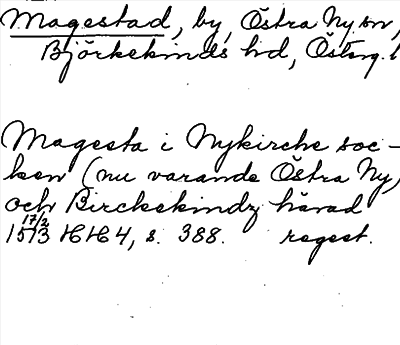 Magestad, by, Östra Ny sn,
Björkekinds hd, Östg. l
Magesta i Nykirche soc-
ken (nu varande Östra Ny)
och Birckekindz härad
17/2
1573 HH 4, s. 388. regest.